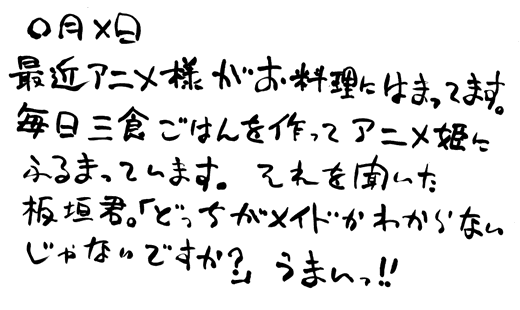 ○月×日
最近アニメ様がお料理にはまってます。
毎日三食ごはんを作ってアニメ姫に
ふるまっています。それを聞いた
板垣君。「どっちがメイドかわからない
じゃないですか?」うまいっ!!